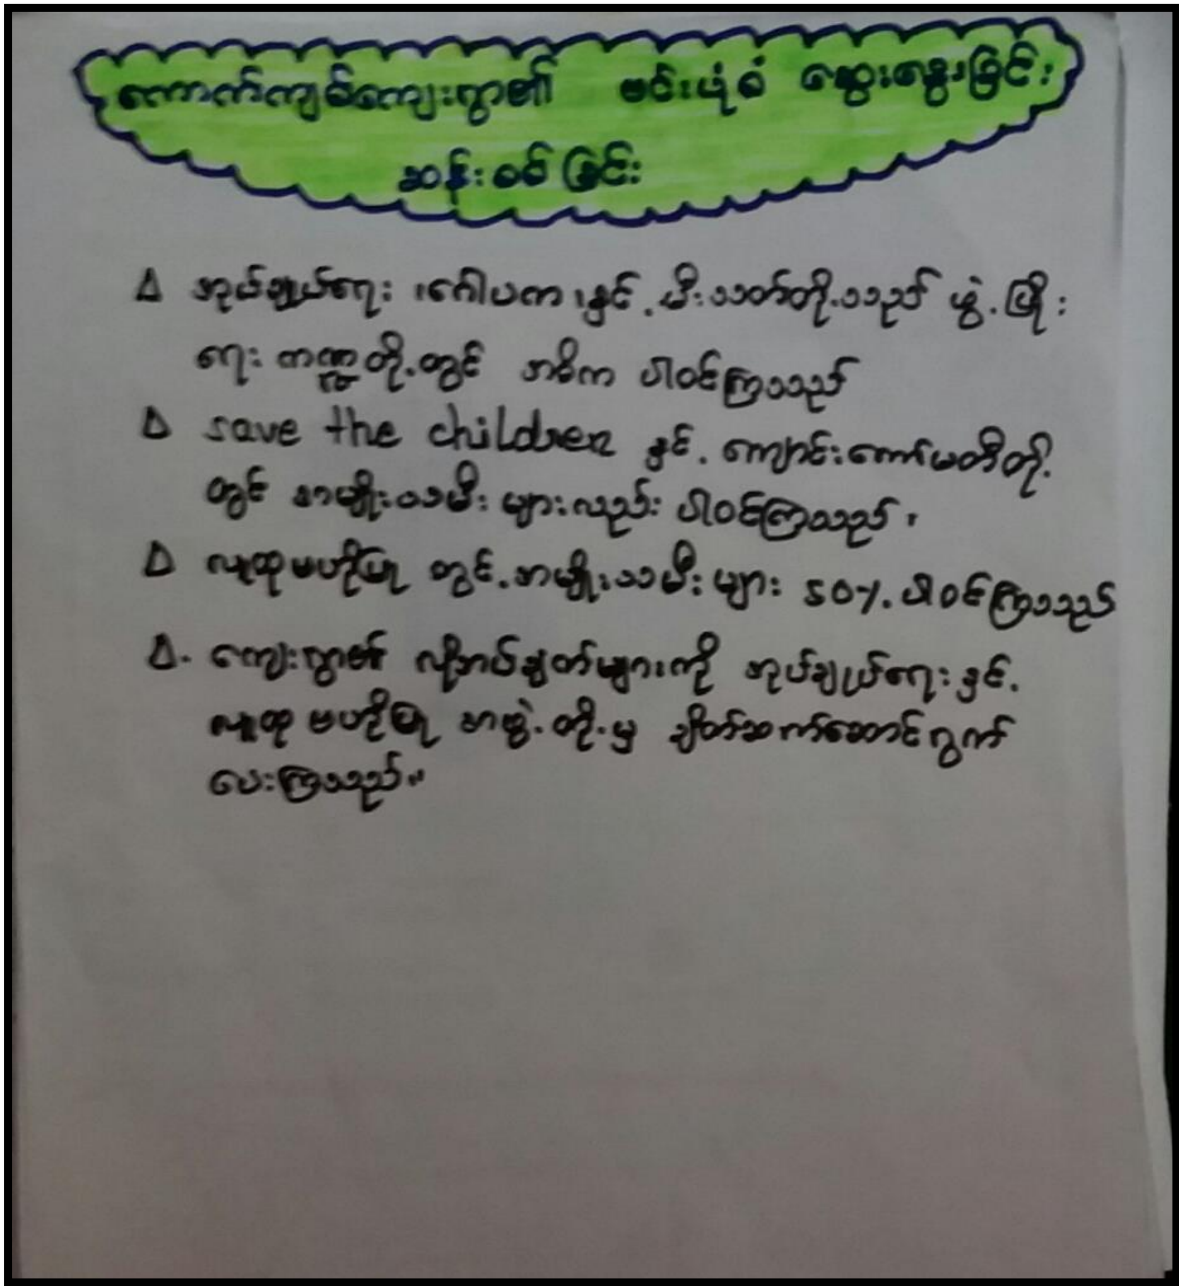 ကောက်ကျစ်ကျေးရွာ၏ ဗင်းပုံစံ ဆွေးနွေးခြင်း
ဆန်းစစ်ခြင်း
Δ အုပ်ချုပ်ရေး ၊ဂေါပက ၊နှင့် မီးသတ်တို့သည် ဖွံ့ဖြိုး
ရေး ကဏ္ဍတို့တွင် အဓိက ပါဝင်ကြသည်
Δ save the children နှင့် ကျောင်းကော်မတီတို့
တွင် အမျိုးသမီး များလည်း ပါဝင်ကြသည်၊
Δ လူထုဗဟိုပြု တွင် အမျိုးသမီး များ 50% ပါဝင်ကြသည်
Δ. ကျေးရွာ၏ လိုအပ်ချက်များကို အုပ်ချုပ်ရေး နှင့်
လူထု ဗဟိုပြု အဖွဲ့ တို့မှ ချိတ်ဆက်ဆောင်ရွက်
ပေးကြသည်။